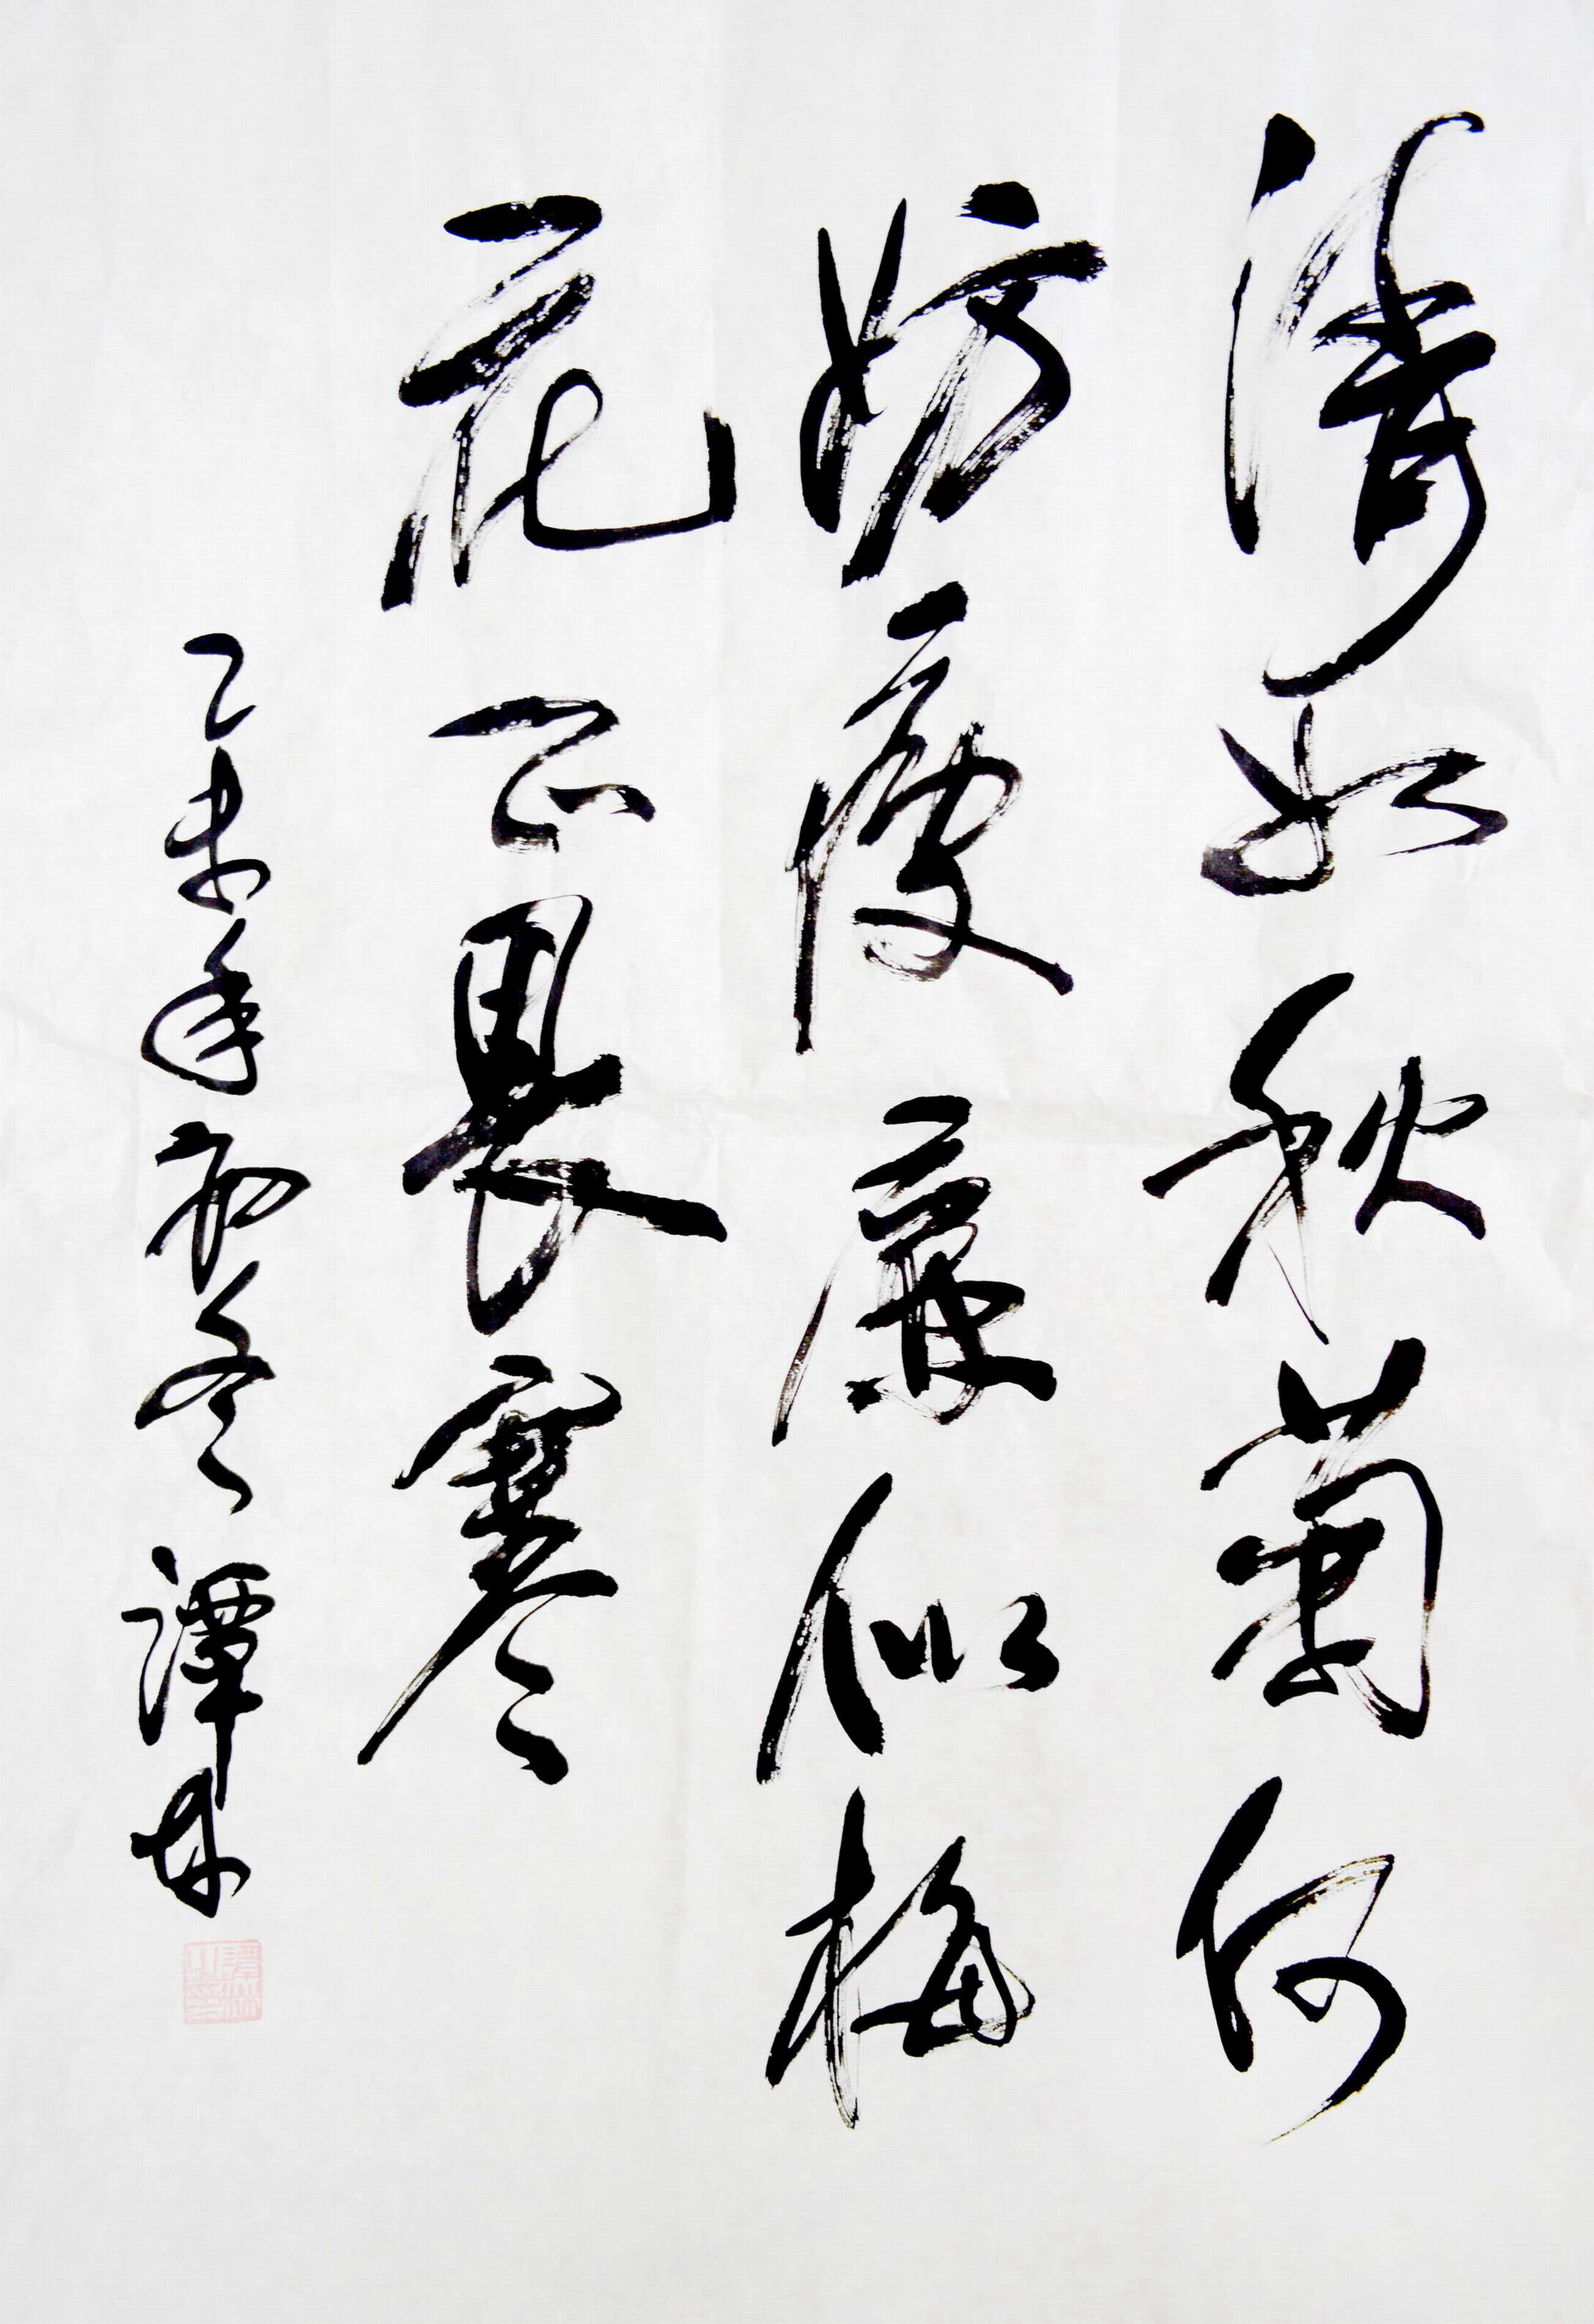 清如秋菊何
妨瘦廉似梅
花正畏寒
乙未年初冬譚林